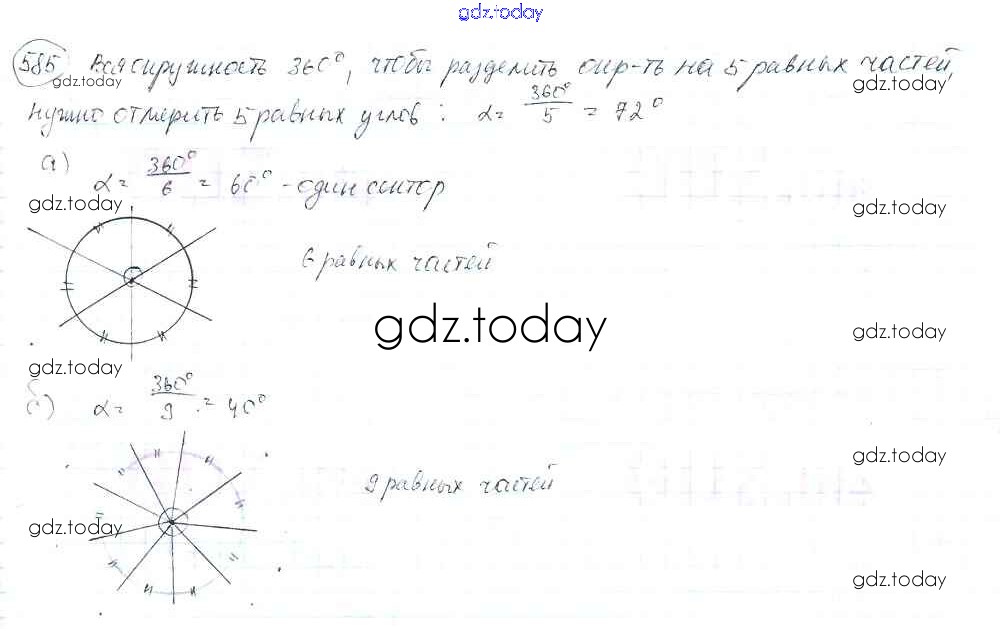 gdz.today
585 Вся окружность 360°, чтобы разделить окр-ть на 5 равных частей,
gdz.today
gdz.today
нужно отмерить 5 равных углов : α = 360°/5 = 72°
а) α = 360°/6 = 60° - один сектор
gdz.today
gdz.today
6 равных частей
gdz.today
gdz.today
gdz.today
б) α = 360°/9 = 40°
gdz.today
9 равных частей
gdz.today
gdz.today